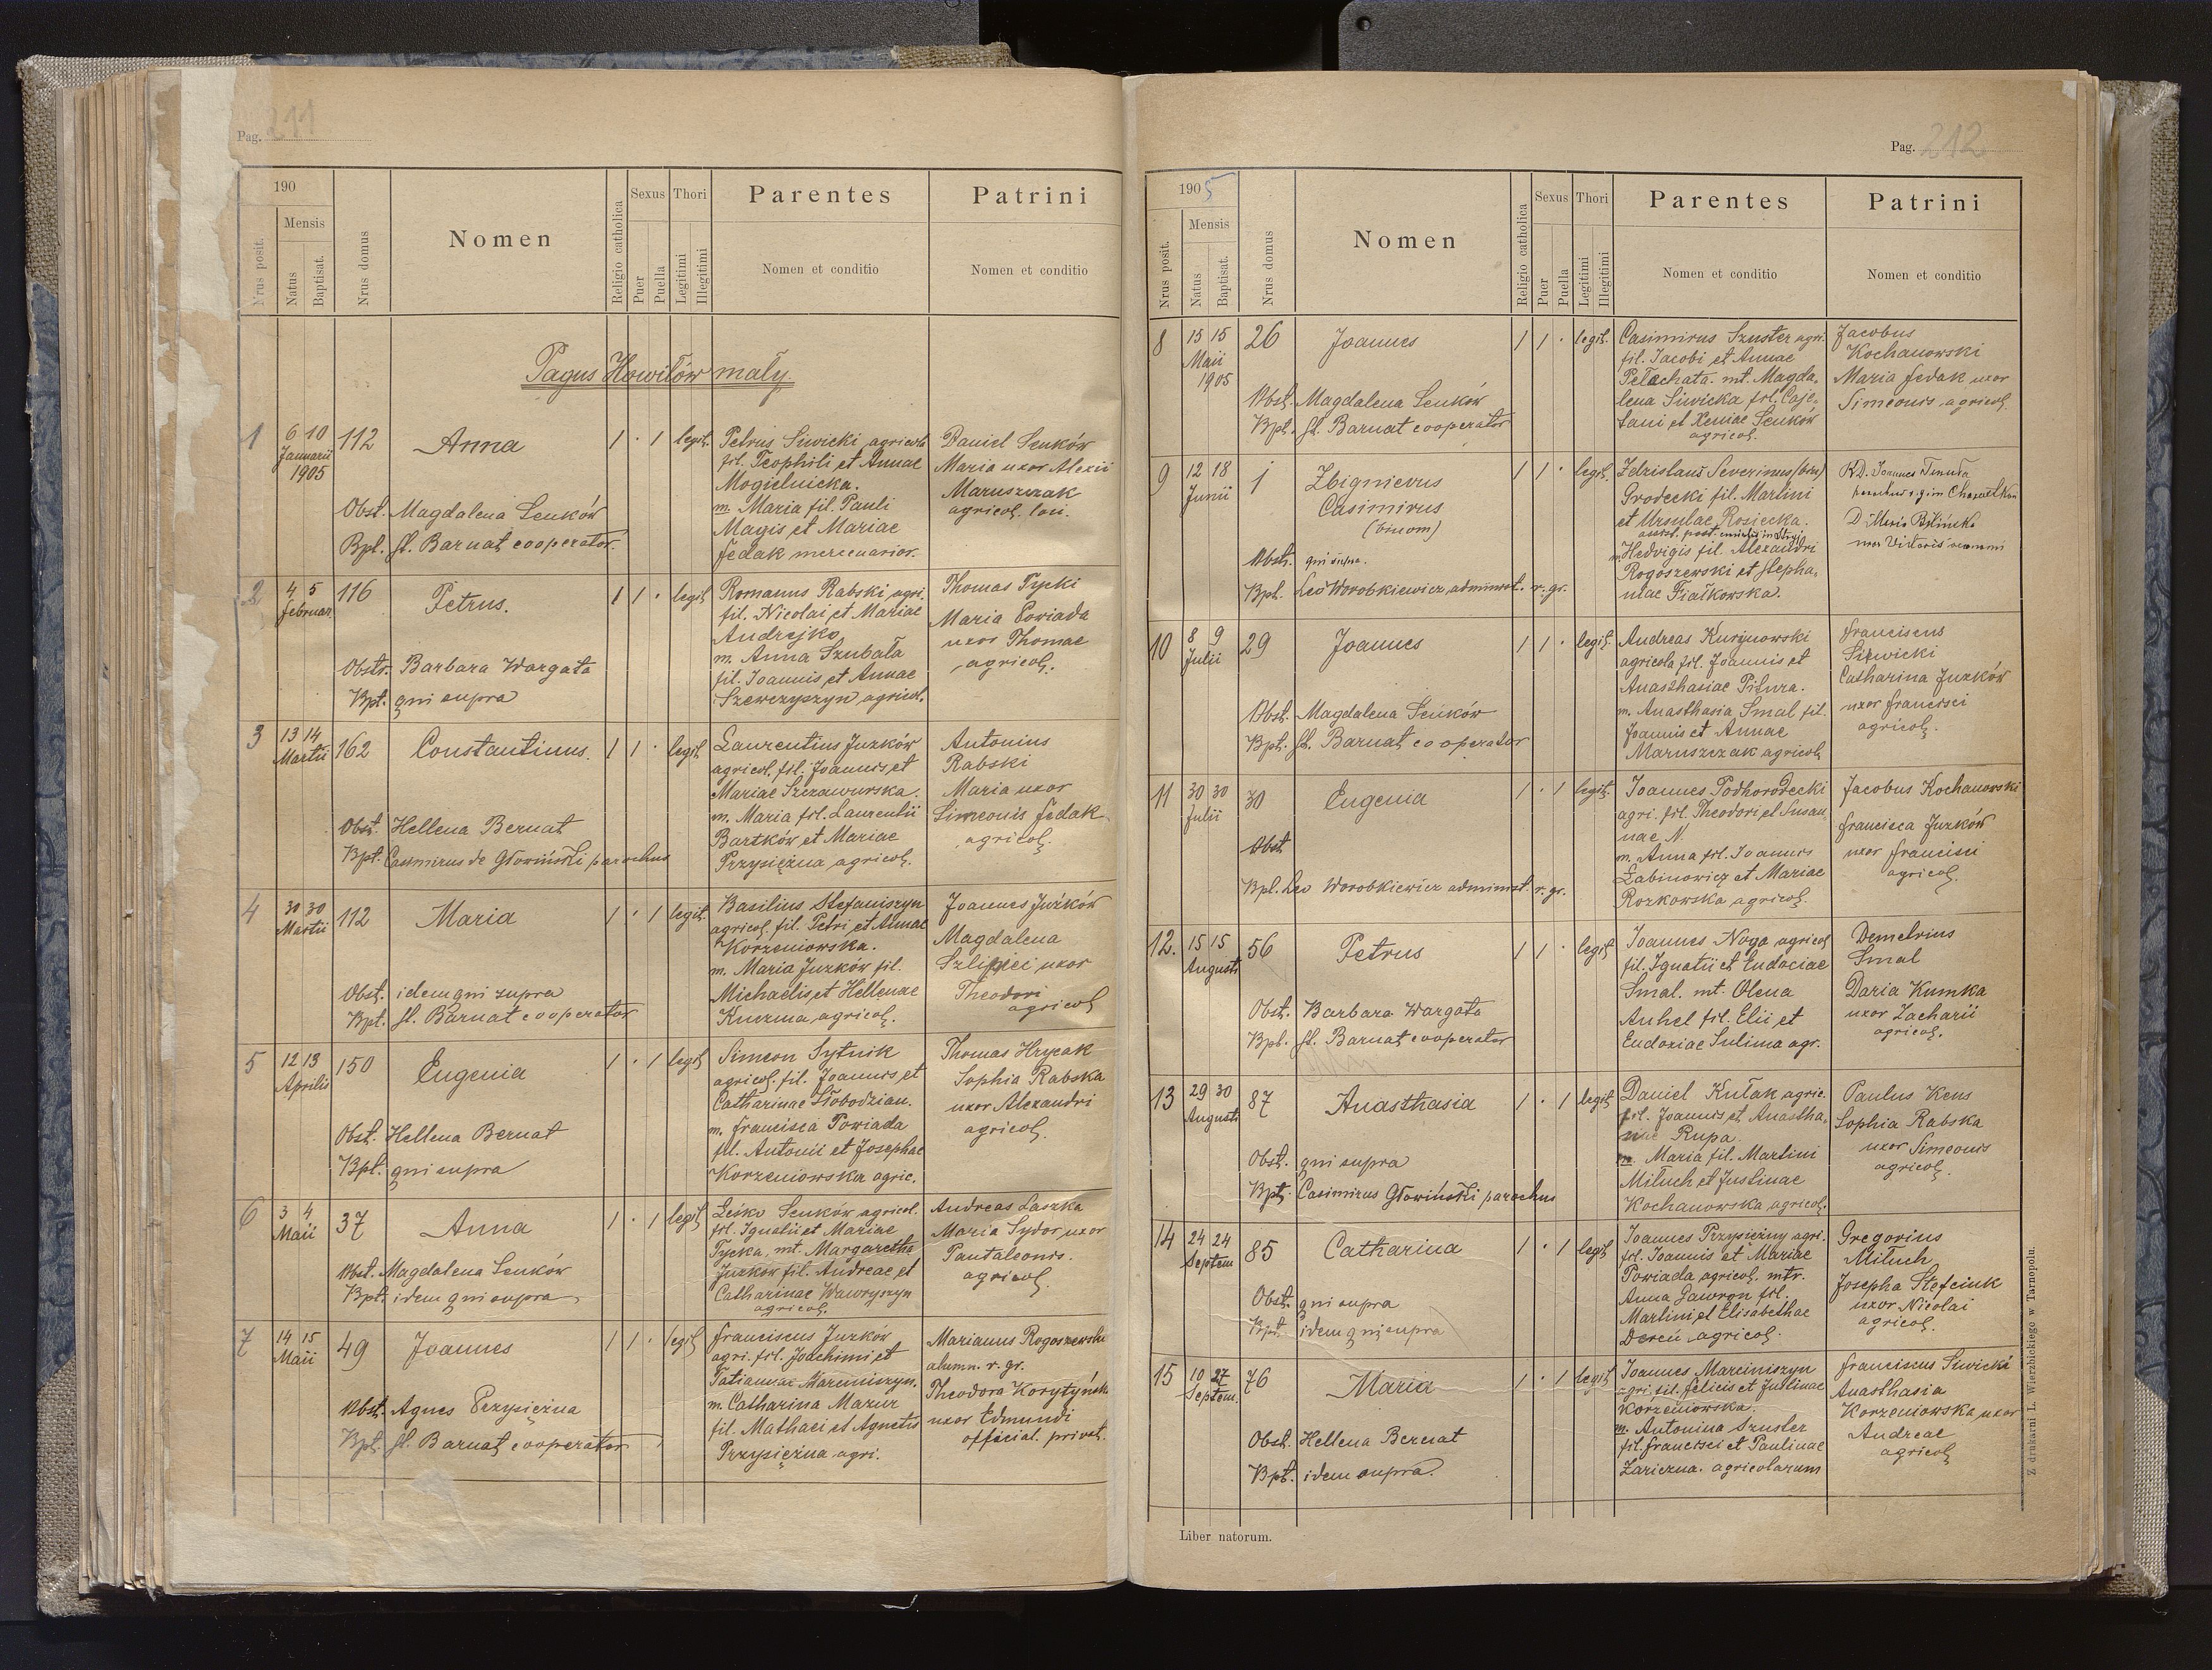 Pag. 211
190
Mensis
Nrus posit.
Natus
Baptisat.
Nrus domus
Nomen
Religio catholica
Sexus
Puer
Puella
Thori
Legitimi
Illegitimi
Parentes
Nomen et conditio
Patrini
Nomen et conditio
Pagus Howiłów mały
1
6 10
Januarii
1905
112
Anna
1 · 1 legit.
Obst. Magdalena Senków
Bpt. St. Barnat cooperator.
Petrus Siwicki agricola
fil. Teophili et Annae
Mogielnicka.
m. Maria fil. Pauli
Magis et Mariae
Fedak mercenarior.
Daniel Senków
Maria uxor Alexii
Maruszczak
agricol. loci.
2
4 5
Februar.
116
Petrus.
1 1 · legit
Obstr. Barbara Wargata
Bpt. qui supra
Romanus Rabski agri.
fil. Nicolai et Mariae
Andrejko
m. Anna Szubała
fil. Joannis et Annae
Szewczyszyn agricol.
Thomas Tycki
Maria Powiada
uxor Thomae
agricol.
3
13 14
Martii
162
Constantinus.
1 1 · legit
Obst. Hellena Bernat
Bpt. Casimirus de Głowiński parochus
Laurentius Juzków
agricol. fil. Joannis et
Mariae Szczawurska.
m. Maria fil. Laurentii
Bartków et Mariae
Przysiężna agricol.
Antonius
Rabski
Maria uxor
Simeonis Fedak
agricol.
4
30 30
Martii
112
Maria
1 · 1 legit.
Obst. idem qui supra
Bpt. St. Barnat cooperator
Basilius Stefaniszyn
agricol. fil. Petri et Annae
Korzeniowska.
m. Maria Juzków fil.
Michaelis et Hellenae
Kuczma agricol.
Joannes Juzków
Magdalena
uxor
Theodori
agricol
5
12 13
Aprilis
150
Eugenia
1 · 1 legit
Obst. Hellena Bernat
Bpt. qui supra
Simeon Sytnik
agricol. fil. Joannis et
Catharinae Słobodzian.
m. Francisca Powiada
fil. Antonii et Josephae
Korzeniowska agric.
Thomas Hrycak
Sophia Rabska
uxor Alexandri
agricol.
6
3 4
Maii
37
Anna
1 · 1 legit
Obst. Magdalena Senków
Bpt. idem qui supra
Leśko Senków agricol.
fil. Ignatii et Mariae
Tycka, mt. Margaretha
Juzków fil. Andreae et
Catharinae Wawryszyn
agricol.
Andreas Laszka
Maria Sydor uxor
Pantaleonis.
agricol.
7
14 15
Maii
49
Joannes
1 1 · legit
Obst. Agnes Przysiężna
Bpt. St. Barnat cooperator
Franciscus Juzków
agri. fil. Joachimi et
Tatiannae Marciniszyn.
m. Catharina Mazur
fil. Mathaei et Agnetis
Przysiężna agri.
Marianus Rogoszewski
alumn. r. gr.
Theodora Korytyńska
uxor Edmundi
official. privat.
Pag. 212
1905
Mensis
Nrus posit.
Natus
Baptisat.
Nrus domus
Nomen
Religio catholica
Sexus
Puer
Puella
Thori
Legitimi
Illegitimi
Parentes
Nomen et conditio
Patrini
Nomen et conditio
8
15 15
Maii
1905
26
Joannes
1 1 · legit.
Obst. Magdalena Senków
Bpt. St. Barnat cooperator
Casimirus Szuster agri.
fil. Jacobi et Annae
Pełachata. mt. Magda-
lena Siwicka fil. Caje-
tani et Xeniae Senków
agricol.
Jacobus
Kochanowski
Maria Fedak uxor
Simeonis agricol
9
12 18
Junii
1
Zbignievus
Casimirus
(binom)
1 1 · legit.
Obst. qui supra.
Bpt. Leo Worobkiewicz administ. r. gr.
Zdzislaus Severinus (bin)
Grodecki fil. Martini
et Ursulae Rosiecka.
m. Hedvigis fil. Alexandri
Rogoszewski et Stepha-
niae Fiałkowska.
RD. Joannes
D. Maria Bilińska
uxor Victoris
10
8 9
Julii
29
Joannes
1 1 · legit.
Obst. Magdalena Senków
Bpt. St. Barnat cooperator
Andreas Kurynowski
agricola fil. Joannis et
Anasthasiae Pitura.
m. Anasthasia Smal fil.
Joannis et Annae
Maruszczak agricol
Franciscus
Siewicki
Catharina Juzków
uxor Francisci
agricol.
11
30 30
Julii
30
Eugenia
1 · 1 legit.
Obst
Bpt. Leo Worobkiewicz administ. r. gr.
Joannes Podhorodecki
agri. fil. Theodori et Susan-
nae N
m. Anna fil. Joannis
Łabinowicz et Mariae
Rozkowska agricol.
Jacobus Kochanowski
Francisca Juzków
uxor Francisci
agricol.
12.
15 15
Augusti
56
Petrus
1 1 · legit
Obst. Barbara Wargata
Bpt. St. Barnat cooperator
Joannes Noga agricol
fil. Ignatii et Eudociae
Smal. mt. Olena
Anhel fil. Elii et
Eudoxiae Sulima agr.
Demetrius
Smal
Daria Kumka
uxor Zacharii
agricol.
13
29 30
Augusti
87
Anasthasia
1 · 1 legit
Obst. qui supra
Bpt. Casimirus Głowiński parochus
Daniel Kułak agric.
fil. Joannis et Anastha-
siae Rupa.
m. Maria fil. Martini
Mituch et Justinae
Kochanowska agricol.
Paulus Kens
Sophia Rabska
uxor Simeonis
agricol.
14
24 24
Septem
85
Catharina
1 · 1 legit
Obst. qui supra
Bpt. idem qui supra
Joannes Przysiężny agri.
fil. Joannis et Mariae
Powiada agricol. mtr.
Anna Gawron fil.
Martini et Elisabethae
Dereń agricol.
Gregorius
Mituch
Josepha Stefciuk
uxor Nicolai
agricol.
15
10 27
Septem.
76
Maria
1 · 1 legit
Obst. Hellena Bernat
Bpt. idem supra.
Joannes Marciniszyn
agri. fil. Felicis et Justinae
Korzeniowska.
m. Antonina Szuster
fil. Francisci et Paulinae
Zariczna. agricolarum
Franciscus Siwicki
Anasthasia
Korzeniowska uxor
Andreae
agricol
Liber natorum.
Z drukarni L. Wierzbickiego w Tarnopolu.